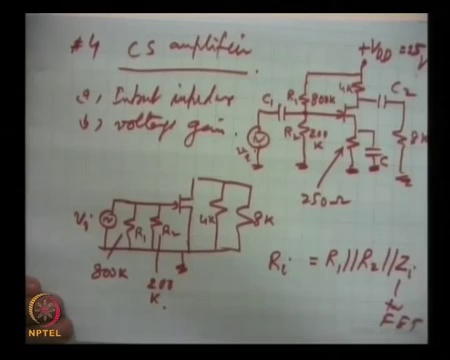 #4 CS amplifier
a, Input impedance
b, voltage gain.
+VDD = 25V
4K
C2
R1
800K
C1
R2
200
K
8K
Vi
C
250Ω
Vi
R1
R2
4K
8K
800K
200
K.
Ri = R1||R2||Zi
FET
NPTEL